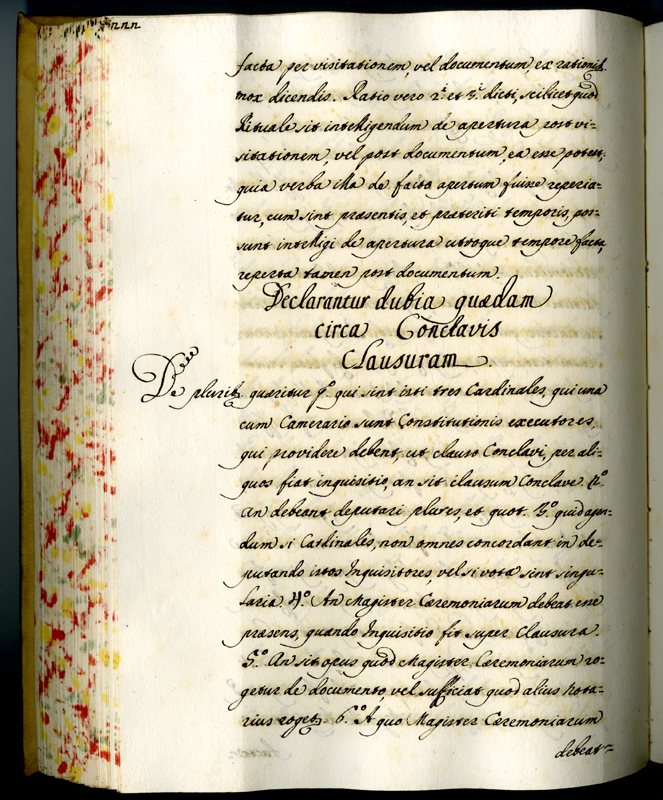 nnn
facta per visitationem, vel documentum, ex rationib.
mox dicendis. Ratio vero 2.i et 3.i dicti, scilicet quod
Rituale sit intelligendum de apertura post vi=
sitationem, vel post documentum, ea esse potest,
quia verba illa de facta apertum fuisse reperia=
tur, cum sint præsentis, et præteriti temporis, pos=
sunt intelligi de apertura utroque tempore facta,
reperta tamen post documentum.
Declarantur dubia quædam
circa Conclavis
Clausuram.
De plurib. quæritur p.o qui sint isti tres Cardinales, qui una
cum Camerario sunt Constitutionis executores,
qui providere debent, ut clauso Conclavi, per ali=
quos fiat inquisitio, an sit clausum Conclave. 2.o
An debeant deputari plures, et quot. 3.o quid agen=
dum si Cardinales, non omnes concordant in de=
putando istos Inquisitores, vel si vota sint singu=
laria. 4.o An Magister Cæremoniarum debeat esse
præsens, quando Inquisitio fit super Clausura.
5.o An sit opus quod Magister Cæremoniarum ro=
getur de documento, vel sufficiat quod alius Nota=
rius roget. 6.o A quo Magister Cæremoniarum
debeat